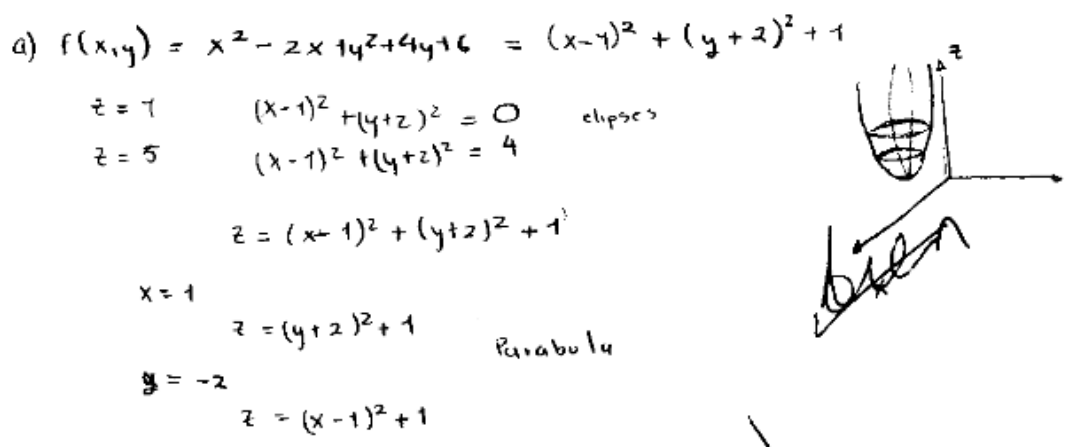 a) f(x,y) = x² - 2x + y² + 4y + 6 = (x-1)² + (y+2)² + 1
z
z = 1 (x-1)² + (y+2)² = 0 elipses
z = 5 (x-1)² + (y+2)² = 4
z = (x-1)² + (y+2)² + 1
bien
x = 1
z = (y+2)² + 1
Parabola
y = -2
z = (x-1)² + 1